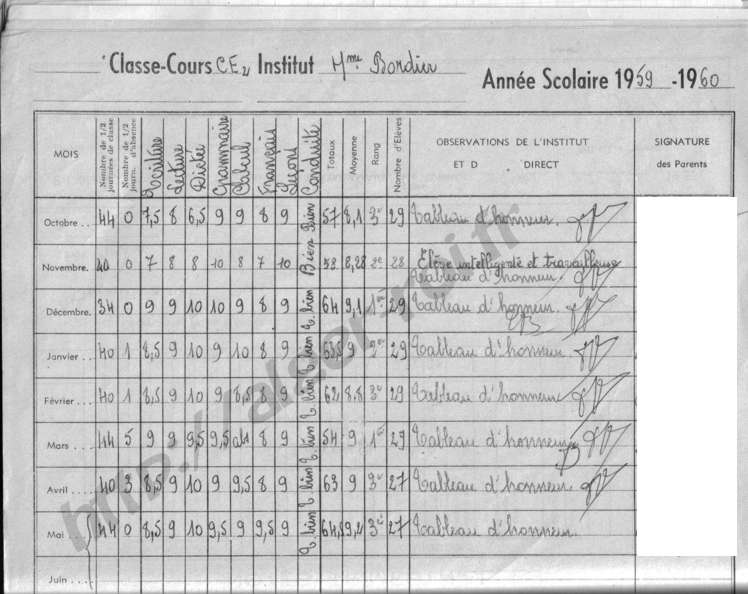 Classe-Cours CE2 Institut Mme Bordier
Année Scolaire 1959-1960
MOIS Nombre de 1/2 journées de classe Nombre de 1/2 journ. d'absence Ecriture Lecture Dictée Grammaire Calcul Français Leçons Conduite Totaux Moyenne Rang Nombre d'Elèves OBSERVATIONS DE L'INSTITUT ET D DIRECT SIGNATURE des Parents
Octobre .. 44 0 7,5 8 6,5 9 9 8 9 Bien 57 8,1 3e 29 Tableau d'honneur.
Novembre. 40 0 7 8 8 10 8 7 10 Bien 58 8,28 2e 28 Elève intelligente et travailleuse
Tableau d'honneur
Décembre. 34 0 9 9 10 10 9 8 9 T. bien 64 9,1 1e 29 Tableau d'honneur.
Janvier .. 40 1 8,5 9 10 9 10 8 9 T. bien 63,5 9 2e 29 Tableau d'honneur.
Février ... 40 1 8,5 9 10 9 8,5 8 9 T. bien 62 8.8 3e 29 Tableau d'honneur
Mars .... 44 5 9 9 9,5 9,5 abs 8 9 T. bien 54 9 1e 29 Tableau d'honneur
Avril .... 40 3 8,5 9 10 9 9,5 8 9 T. bien 63 9 3e 27 Tableau d'honneur.
Mai .... 44 0 8,5 9 10 9,5 9 9,5 9 T. bien 64,5 9,2 3e 27 Tableau d'honneur.
Juin ....
http://alger-roi.fr